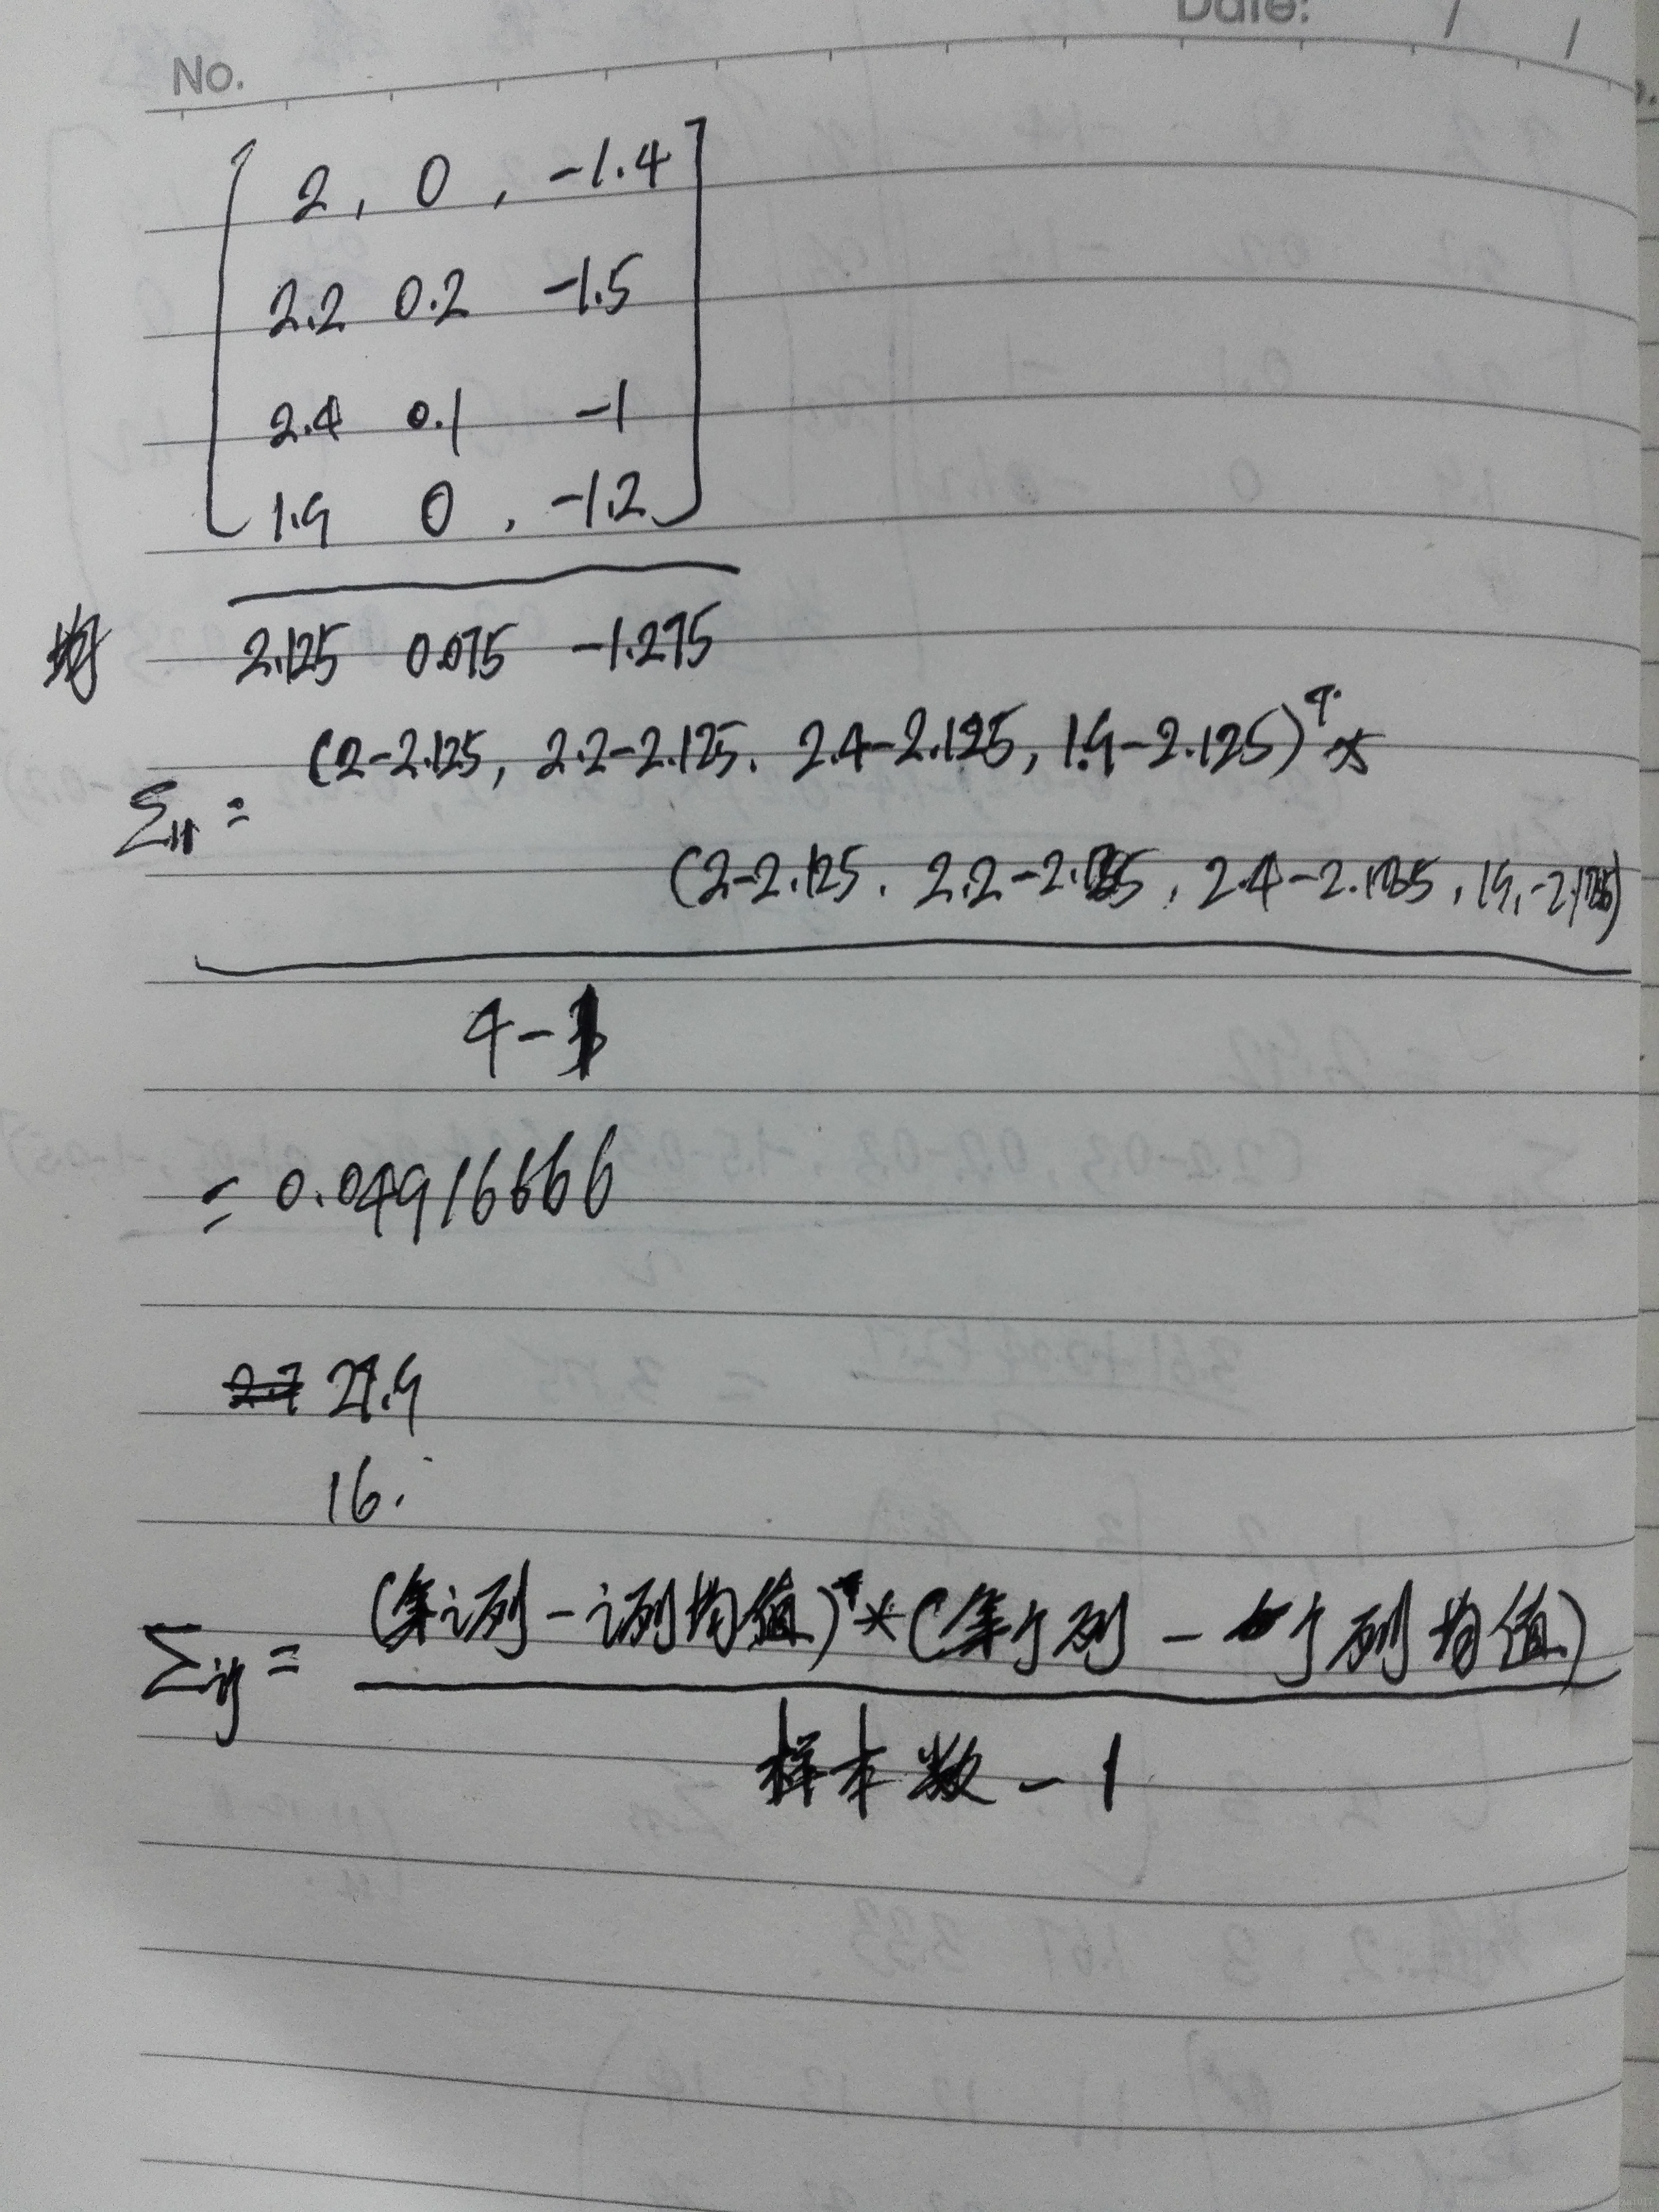 Date: / /
No.
2, 0, -1.4
2.2 0.2 -1.5
2.4 0.1 -1
1.9 0, -1.2
均 2.125 0.075 -1.275
(2-2.125, 2.2-2.125. 2.4-2.125, 1.9-2.125)ᵀ*
Σ₁₁=
(2-2.125. 2.2-2.125, 2.4-2.125, 1.9-2.125)
4-1
= 0.04916666
27.9
16.
(第i列-i列均值)ᵀ*(第j列-j列均值)
Σij=
样本数-1